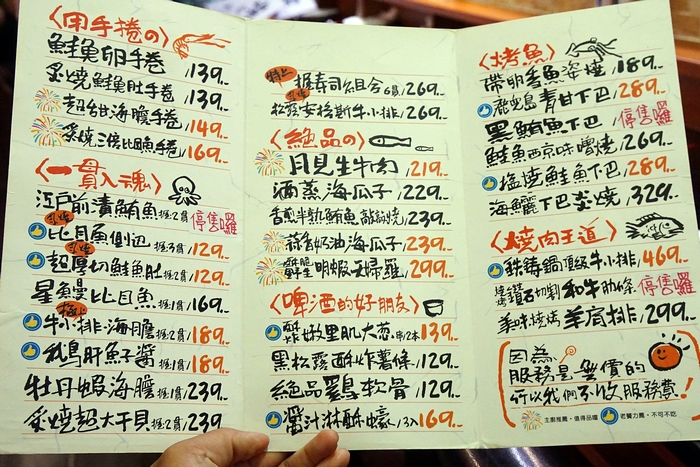 〈用手捲の〉
鮭魚卵手卷 139..
炙燒鮭魚肚手卷 139..
超甜海膽手卷 149..
炙燒三倍比目魚手卷 169..
〈一貫入魂〉
江戶前漬鮪魚 握2貫 停售囉
炙燒
比目魚側邊 握3貫 129..
炙燒
超厚切鮭魚肚 握2貫 129..
星鰻比目魚 握1貫 169..
極上
牛小排海膽 握2貫 189..
鵝肝魚子醬 握1貫 189..
牡丹蝦海膽 握1貫 239..
炙燒超大干貝 握2貫 239..
特上
握壽司組合 6貫 269..
松露安格斯牛小排 269..
〈絕品の〉
月見生牛肉 219..
酒蒸海瓜子 229..
半熟鮪魚 239..
蒜香奶油海瓜子 239..
明蝦 299..
〈啤酒的好朋友〉
酥炸嫩里肌大蔥 串/2本 139..
黑松露酥炸薯條 129..
絕品雞軟骨 129..
醬汁淋酥蠔 /3入 169..
〈烤魚〉
帶卵香魚姿燒 189..
鹿兒島青甘下巴 289..
黑鮪魚下巴 停售囉
鮭魚西京味噌燒 269..
塩燒鮭魚下巴 289..
海鱺下巴炙燒 329..
〈燒肉王道〉
鑄鐵鍋頂級牛小排 469..
鑽石切割和牛肋條 停售囉
美味燒烤羊肩排 299..
因為
服務是無價的
所以我們不收服務費!
主廚推薦。值得品嚐 老饕力薦。不可不吃